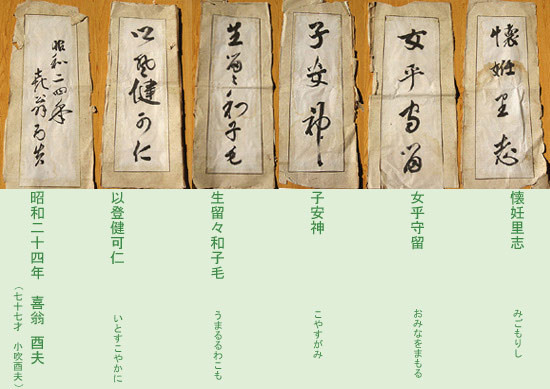 懐妊里志
女乎守留
子安神
生留々和子毛
以登健可仁
昭和二四年
喜翁酉夫
懐妊里志
みごもりし
女乎守留
おみなをまもる
子安神
こやすがみ
生留々和子毛
うまるるわこも
以登健可仁
いとすこやかに
昭和二十四年 喜翁 酉夫
(七十七才 小吹酉夫)